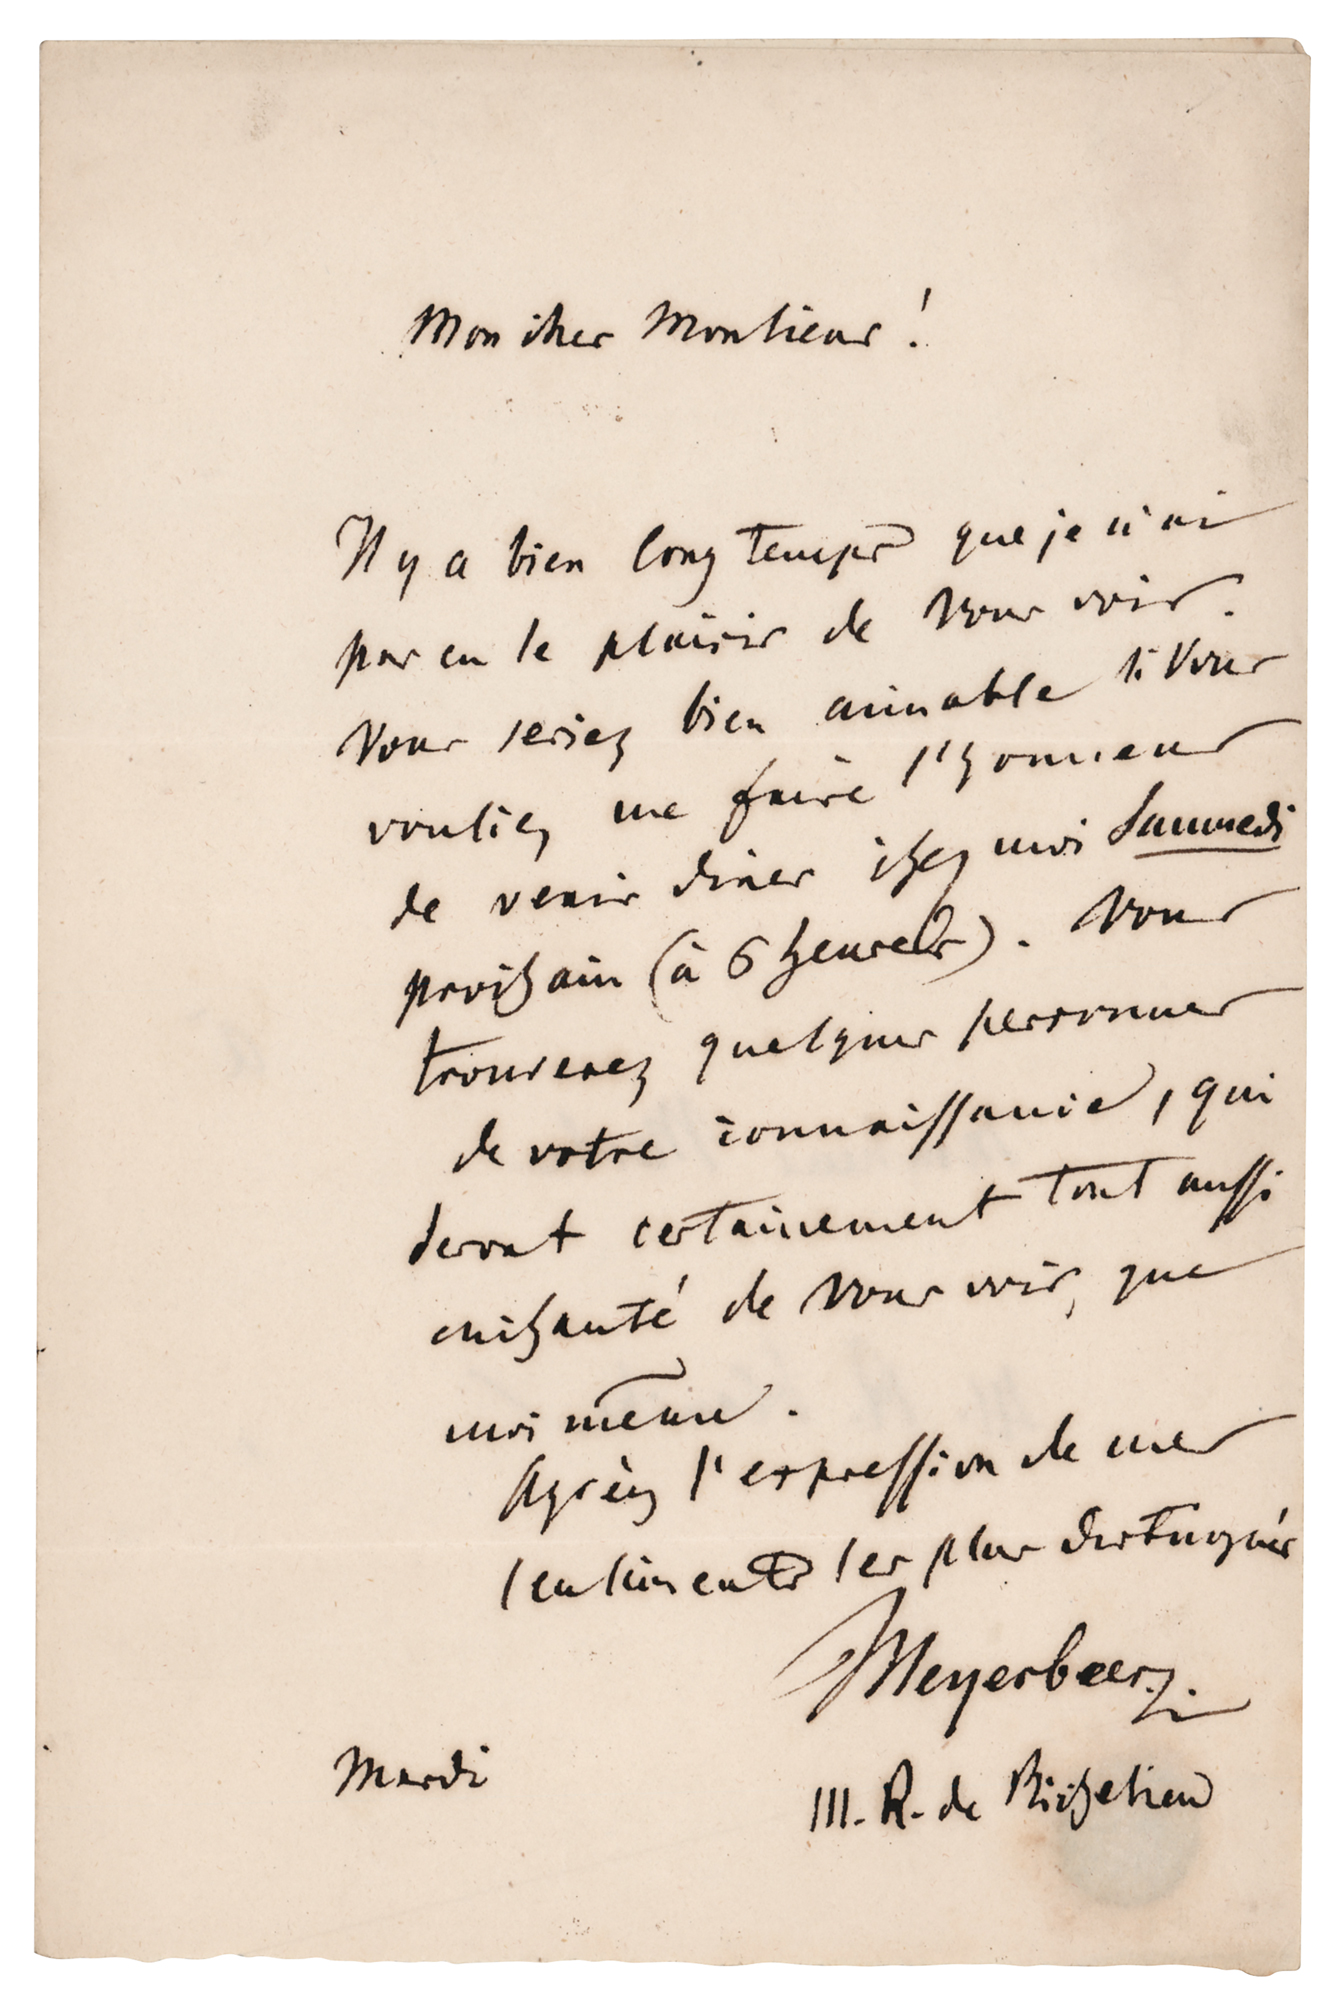 Mon cher Monsieur!
Il y a bien long temps que je n'ai
pas eu le plaisir de Vous voir.
Vous seriez bien aimable si Vous
vouliez me faire l'honneur
de venir diner chez moi Samedi
prochain (à 6 heures). Vous
trouverez quelques personnes
de votre connaissance, qui
seront certainement tout aussi
enchanté de Vous voir, que
moi même.
Agréez l'expression de mes
sentiments les plus distingués
Meyerbeer.
Mardi
111. R. de Richelieu